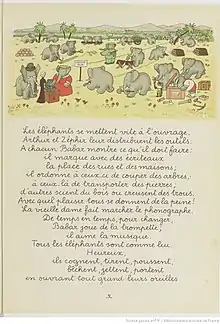 Les éléphants se mettent vite à l'ouvrage.
Arthur et Zéphir leur distribuent les outils.
A chacun Babar montre ce qu'il doit faire:
il marque avec des écriteaux
la place des rues et des maisons;
il ordonne à ceux-ci de couper des arbres,
à ceux-là de transporter des pierres;
d'autres scient du bois ou creusent des trous.
Avec quel plaisir tous se donnent de la peine!
La vieille dame fait marcher le phonographe.
De temps en temps, pour changer,
Babar joue de la trompette;
il aime la musique.
Tous les éléphants sont comme lui
Heureux,
ils cognent, tirent, poussent,
bêchent, jettent, portent
en ouvrant tout grand leurs oreilles